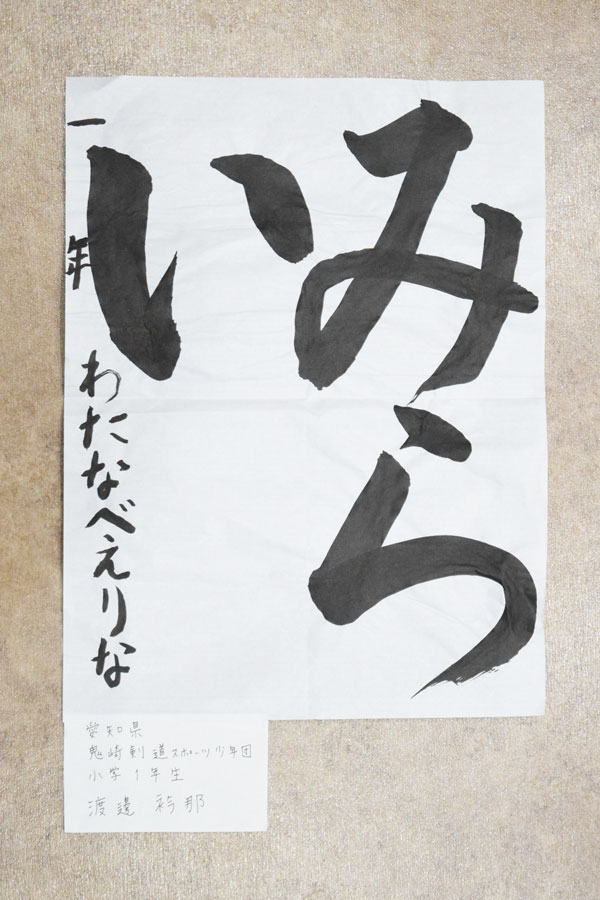 みら
い
一年 わたなべえりな
愛知県
鬼崎剣道スポーツ少年団
小学1年生
渡邉 衿那